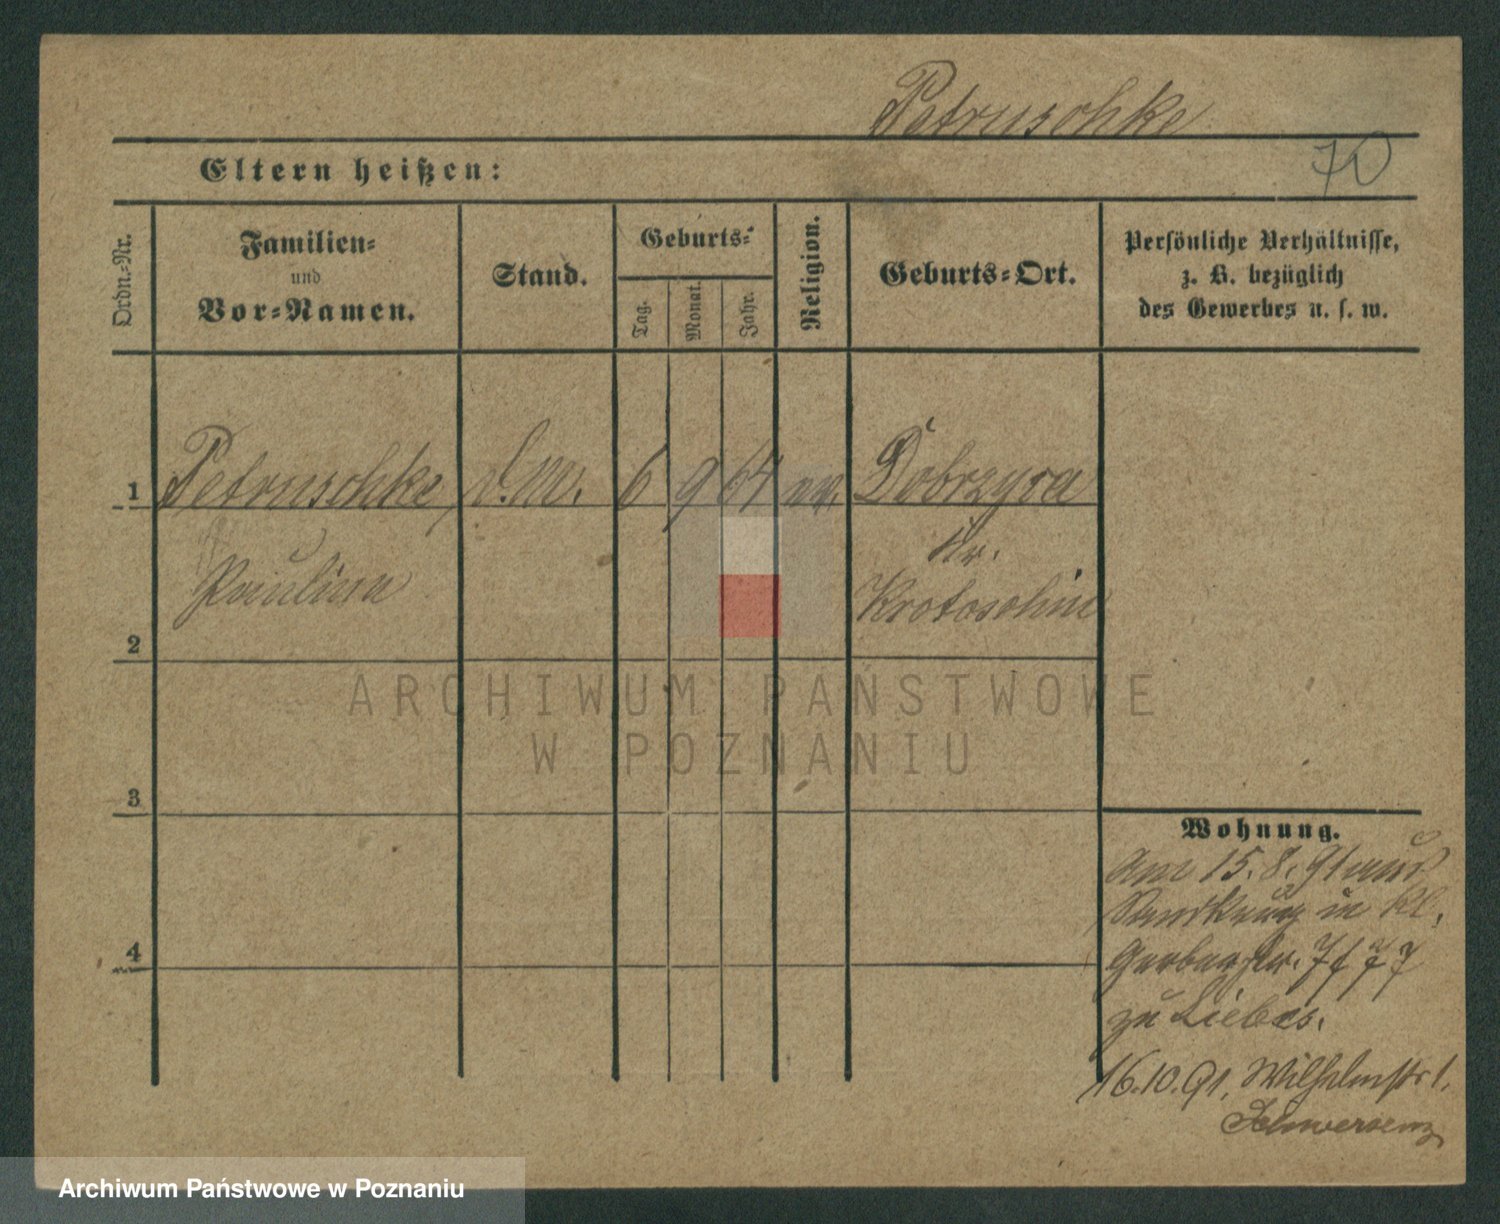 Petruschke
70
Eltern heißen:
Ordn.-Nr.
Familien-
und
Vor-Namen.
Stand.
Geburts-
Tag.
Monat.
Jahr.
Religion.
Geburts-Ort.
Persönliche Verhältnisse,
z. B. bezüglich
des Gewerbes u. s. w.
1 Petruschke, d.M. 6 9 64 ev. Dobrzyca
Kr.
Paulina Krotoschin
2
ARCHIWUM PAŃSTWOWE
W POZNANIU
3
Wohnung.
Am 15.8.91 aus
in Kl.
Gerberstr.
4
zu Liebes.
16.10.91. Wilhelmstr 1.
Schwersenz
Archiwum Państwowe w Poznaniu